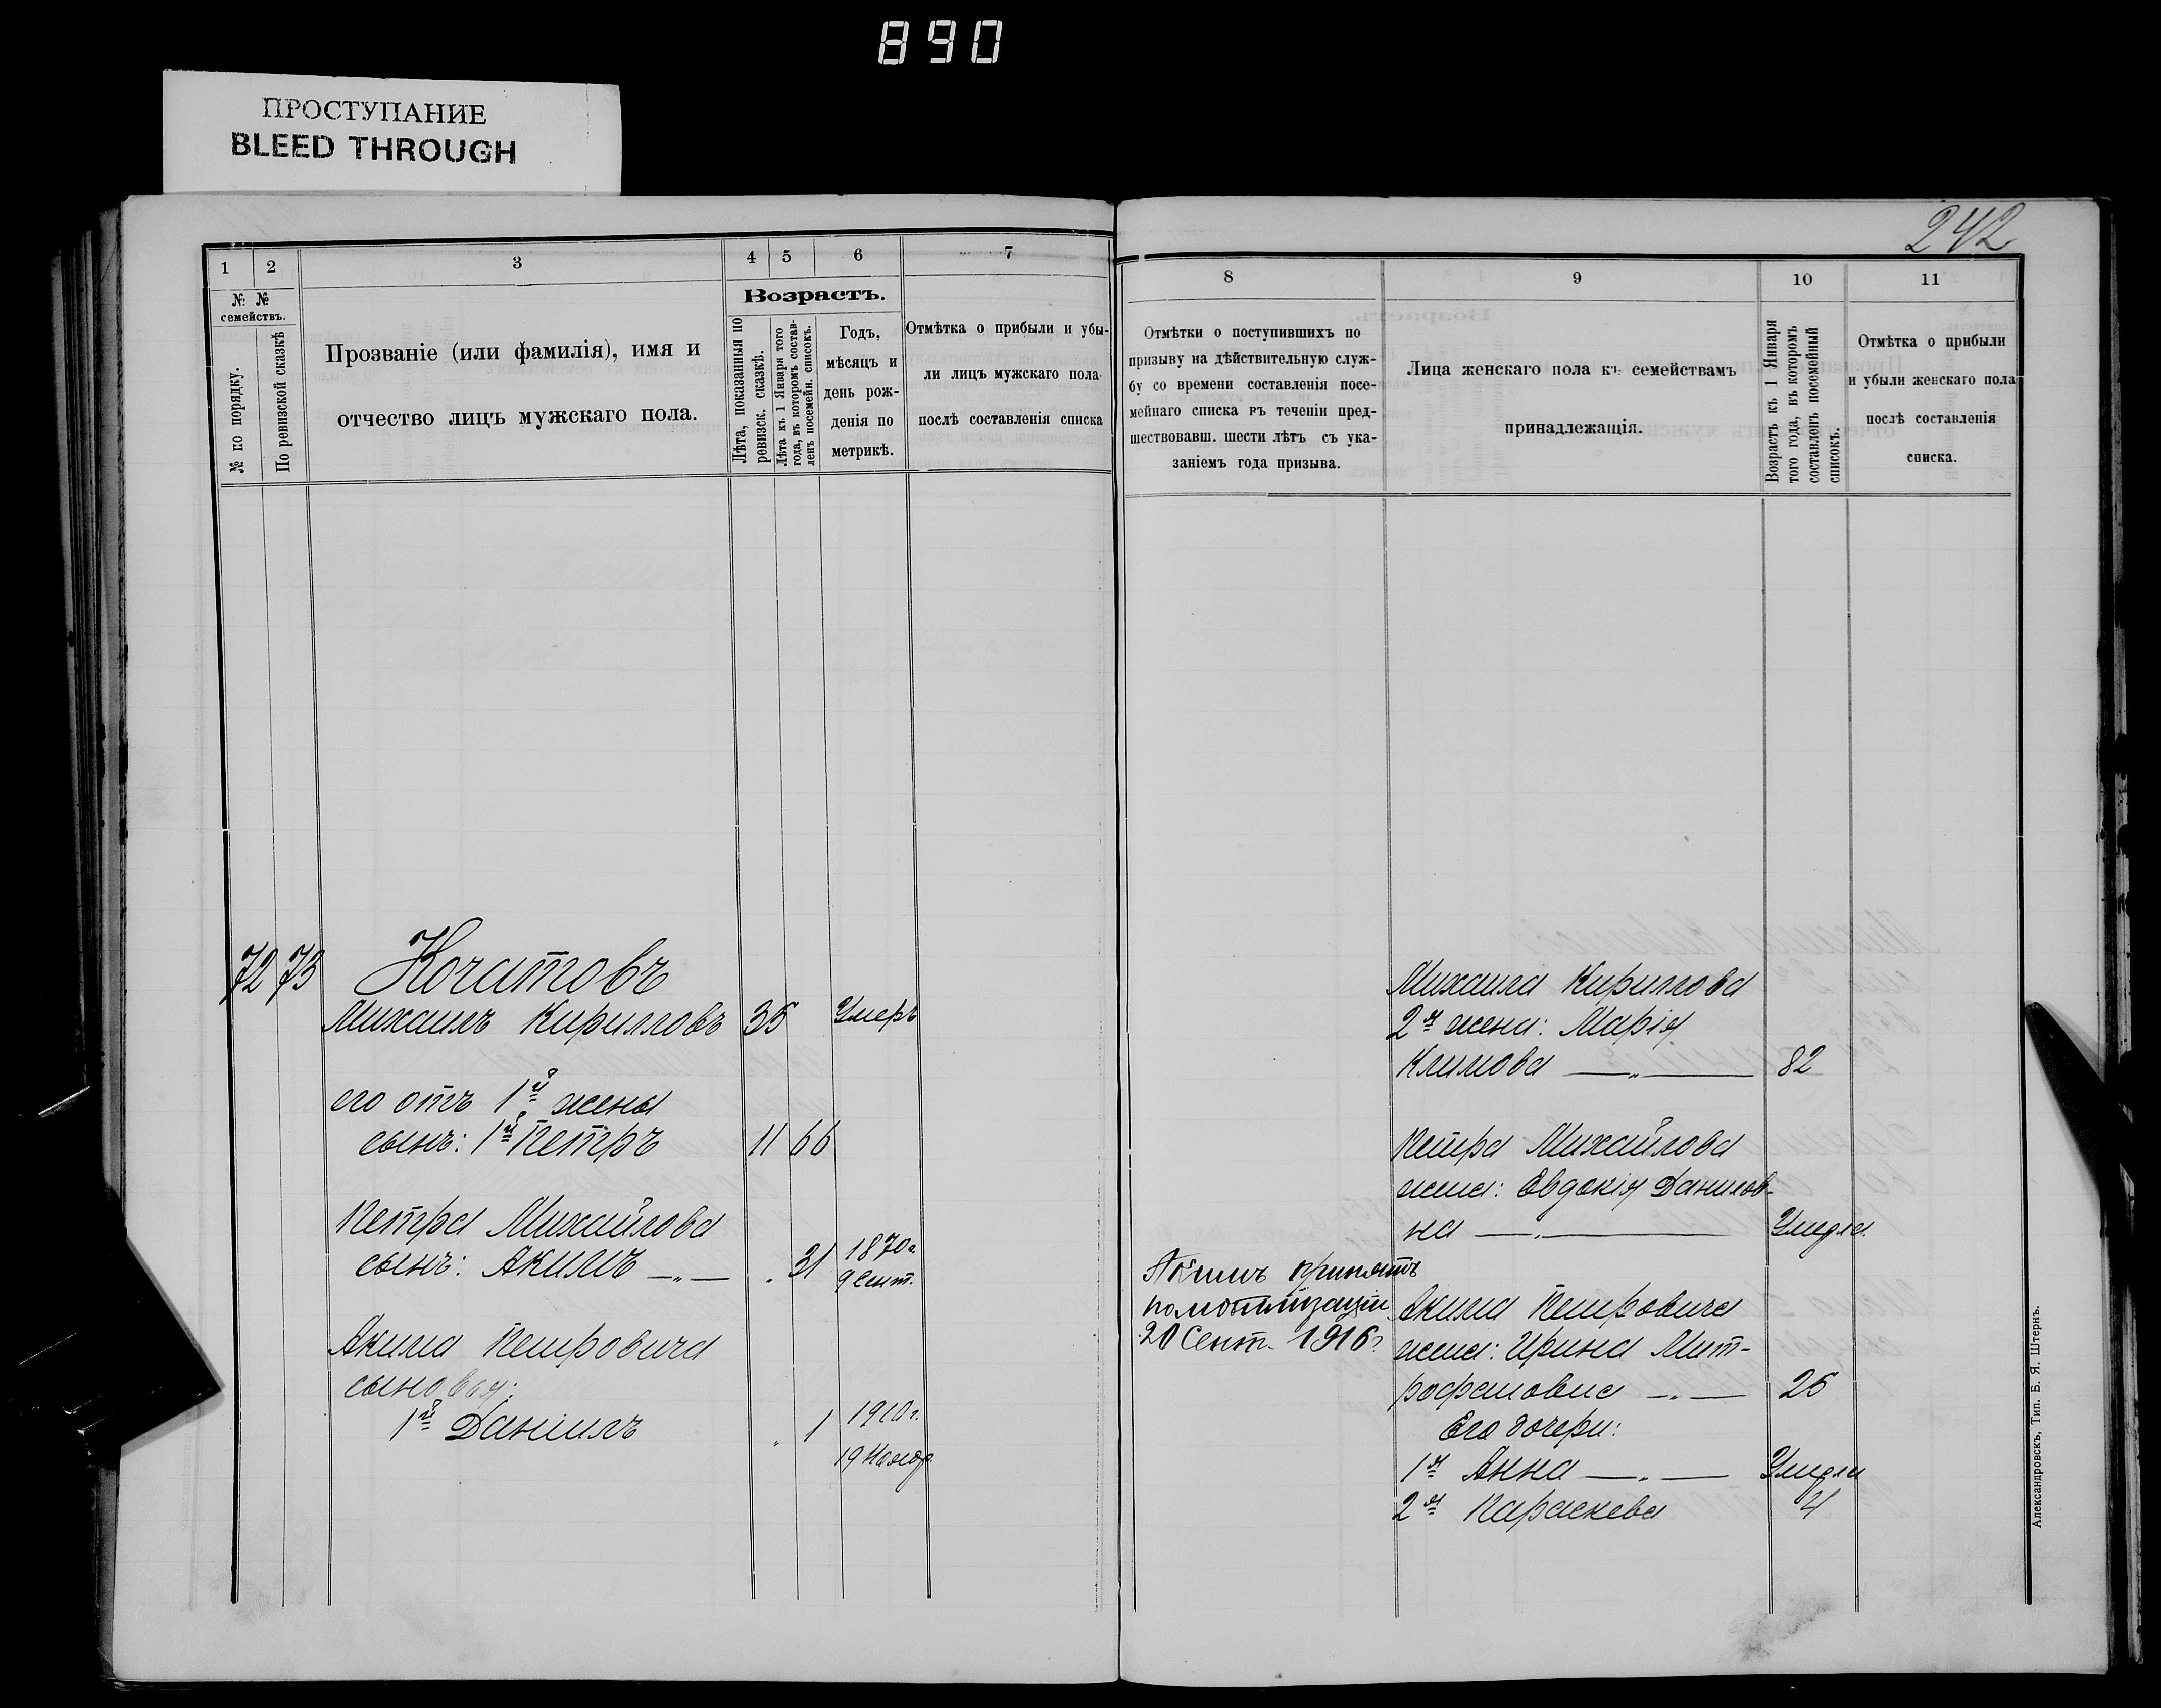 890
ПРОСТУПАНИЕ
BLEED THROUGH
242
1 2 3 4 5 6 7
№ № семействъ.
№ по порядку.
По ревизской сказкѣ
Прозваніе (или фамилія), имя и
отчество лицъ мужскаго пола.
Возрастъ.
Лѣта, показанныя по
ревизск. сказкѣ.
Лѣта къ 1 Января того
года, въ которомъ состав-
ленъ посемейн. списокъ.
Годъ,
мѣсяцъ и
день рож-
денія по
метрикѣ.
Отмѣтка о прибыли и убы-
ли лицъ мужскаго пола
послѣ составленія списка
72 73 Кочатовъ
Михаилъ Кирилловъ 35 Умеръ
его отъ 1й жены
сынъ: 1й Петръ 11 66
Петра Михайлова
сынъ: Акимъ —„— „ 31 1870г.
9 Сент.
Акима Петровича
сыновья:
1й Даніилъ „ 1 1910г.
19 Наябр
8 9 10 11
Отмѣтки о поступившихъ по
призыву на дѣйствительную служ-
бу со времени составленія посе-
мейнаго списка въ теченіи пред-
шествовавш. шести лѣтъ съ ука-
заніемъ года призыва.
Лица женскаго пола къ семействамъ
принадлежащія.
Возрастъ къ 1 Января
того года, въ которомъ
составленъ посемейный
списокъ.
Отмѣтка о прибыли
и убыли женскаго пола
послѣ составленія
списка.
Михаила Кириллова
2я жена: Марія
Климова —„— 82
Петра Михайлова
жена: Евдокія Данилов-
на —„— Умерла.
Акимъ принятъ
по мобилизаціи
20 Сент. 1916г.
Акима Петровича
жена: Ирина Мит-
рофановна —„— 26
Его дочери:
1я Анна —„— Умерла
2я Параскева 4
Александровскъ, Тип. Б. Я. Штернъ.